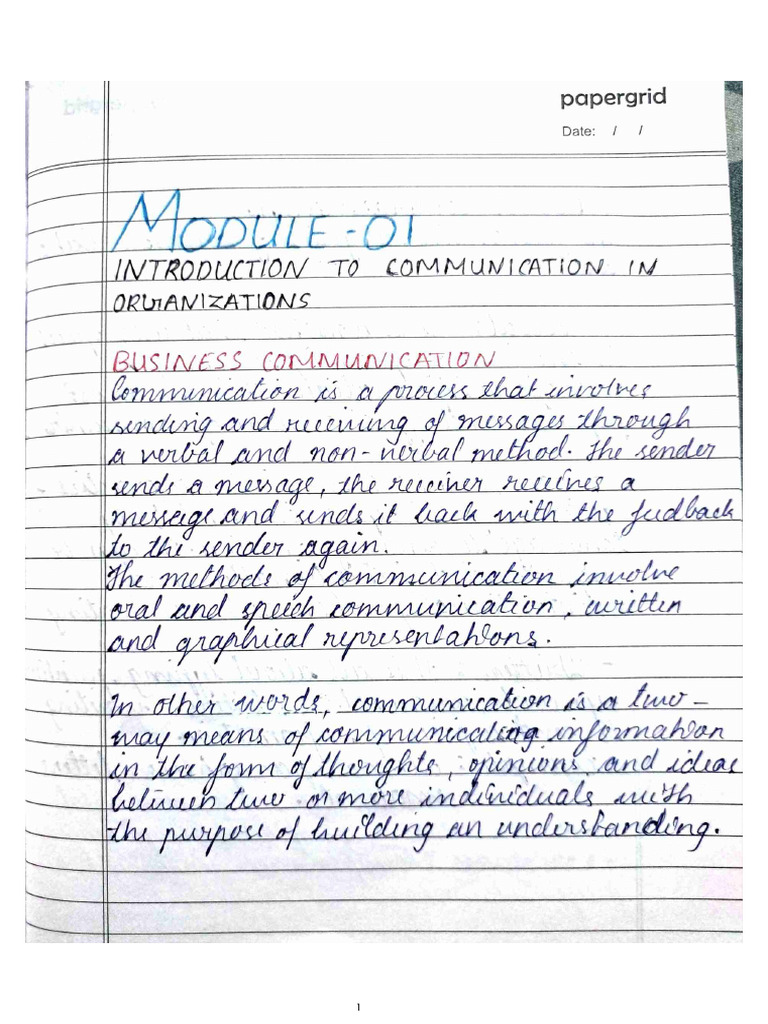 papergrid
Date: / /
MODULE-01
INTRODUCTION TO COMMUNICATION IN
ORGANIZATIONS
BUSINESS COMMUNICATION
Communication is a process that involves
sending and receiving of messages through
a verbal and non-verbal method. The sender
sends a message, the receiver receives a
message and sends it back with the feedback
to the sender again.
The methods of communication involve
oral and speech communication, written
and graphical representations.
In other words, communication is a two-
way means of communicating information
in the form of thoughts, opinions and ideas
between two or more individuals with
the purpose of building an understanding.
1